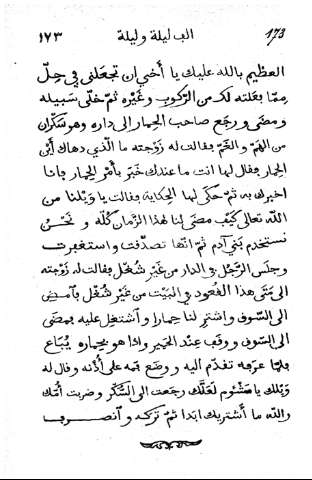 ١٦٣ الف ليلة وليلة 173
العظيم بالله عليك يا أخي ان تجعلني في حِلّ
مما فعلته لك من الركوب وغيره ثمّ خلّى سبيله
ومضى ورجع صاحب الحمار الى داره وهو سكران
من الهمّ والغمّ فقالت له زوجته ما الّذي دهاك أين
الحمار فقال لها انت ما عندك خبَر بأمْر الحمار فانا
اخبرك به ثمّ حكى لها الحكاية فقالت يا ويلنا من
الله تعالى كيف مضى لنا هذا الزمان كلّه و نحْنُ
نستخدم بني آدم ثمّ انّها تصدّقت واستغفرت
وجلس الرّجل في الدار من غيْر شُغْل فقالت له زوجته
الى متى هذا القعود في البيْت من غيْر شُغْل فآمض
الى السّوق واشترِ لنا حمارا واشتغل عليه فمضى
الى السّوق ووقف عِنْد الحمير واذا هو بحماره يُباع
فلمّا عرفه تقدّم اليه و وضع فمه على أُذْنه وقال له
ويلك يا مشْئوم لعلّك رجعت الى السُّكْر وضربت أُمّك
والله ما أشتريك ابدا ثمّ تركه وانصرف